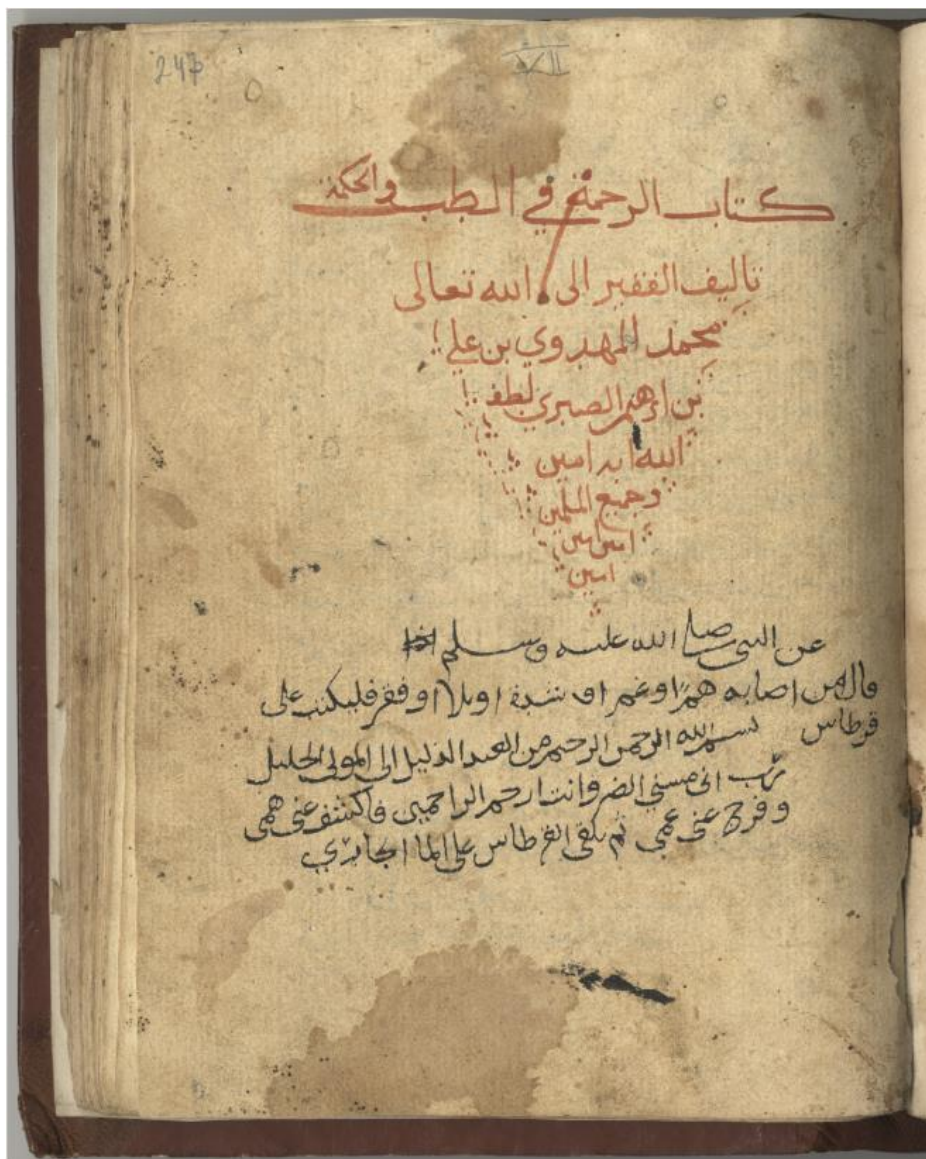 247
XII
كتاب الرحمة في الطب والحكمة
تاليف الفقير الى الله تعالى
محمد المهدوي بن علي
بن ابرهيم الصبري لطف
الله به امين
وجميع المسلمين
امين امين
امين
عن النبي صلى الله عليه وسلم
قال من اصابه هم او غم او شدة او بلا او فقر فليكتب على
قرطاس بسم الله الرحمن الرحيم من العبد الذليل الى المولى الجليل
رب اني مسني الضر وانت ارحم الراحمين فاكشف عني همي
وفرج عني غمي ثم يلقى القرطاس على الما الجاري